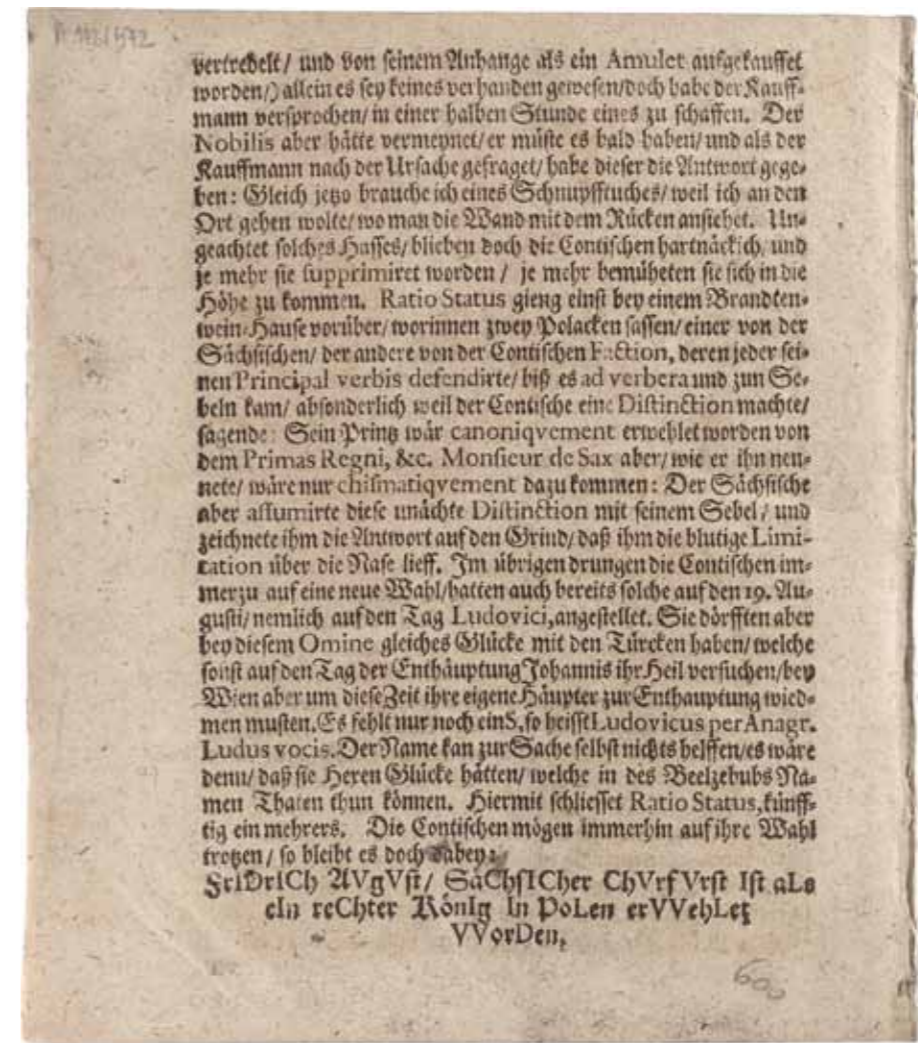 vertredelt/ und von seinem Anhange als ein Amulet aufgekauffet
worden/) allein es sey keines verhanden gewesen/doch habe der Kauff-
mann versprochen/ in einer halben Stunde eines zu schaffen. Der
Nobilis aber hätte vermeynet/ er müste es bald haben/ und als der
Kauffmann nach der Ursache gefraget/ habe dieser die Antwort gege-
ben: Gleich jetzo brauche ich eines Schnupfftuches/ weil ich an den
Ort gehen wolte/ wo man die Wand mit dem Rücken ansiehet. Un-
geachtet solches Hasses/ blieben doch die Contischen hartnäckich, und
je mehr sie supprimiret worden / je mehr bemüheten sie sich in die
Höhe zu kommen. Ratio Status gieng einst bey einem Brandten-
wein-Hause vorüber/ worinnen zwey Polacken sassen/ einer von der
Sächsischen/ der andere von der Contischen Faction, deren jeder sei-
nen Principal verbis defendirte/ biß es ad verbera und zun Se-
beln kam/ absonderlich weil der Contische eine Distinction machte/
sagende: Sein Printz wär canoniqvement erwehlet worden von
dem Primas Regni, &c. Monsieur de Sax aber/ wie er ihn nen-
nete/ wäre nur chismatiqvement dazu kommen: Der Sächsische
aber assumirte diese unächte Distinction mit seinem Sebel/ und
zeichnete ihm die Antwort auf den Grind/ daß ihm die blutige Limi-
tation über die Nase lieff. Im übrigen drungen die Contischen im-
merzu auf eine neue Wahl/hatten auch bereits solche auf den 19. Au-
gusti/ nemlich auf den Tag Ludovici,angestellet. Sie dörfften aber
bey diesem Omine gleiches Glücke mit den Türcken haben/ welche
sonst auf den Tag der Enthäuptung Johannis ihr Heil versuchen/bey
Wien aber um diese Zeit ihre eigene Häupter zur Enthauptung wied-
men musten. Es fehlt nur noch ein S, so heisst Ludovicus per Anagr.
Ludus vocis. Der Name kan zur Sache selbst nichts helffen/es wäre
denn/ daß sie Heren Glücke hätten/ welche in des Beelzebubs Na-
men Thaten thun können. Hiermit schliesset Ratio Status, künff-
tig ein mehrers. Die Contischen mögen immerhin auf ihre Wahl
trotzen / so bleibt es doch dabey:
FrIDrICh AVgVst/ SäChsICher ChVrfVrst Ist aLs
eIn reChter KönIg In PoLen erVVehLet
VVorDen.
600